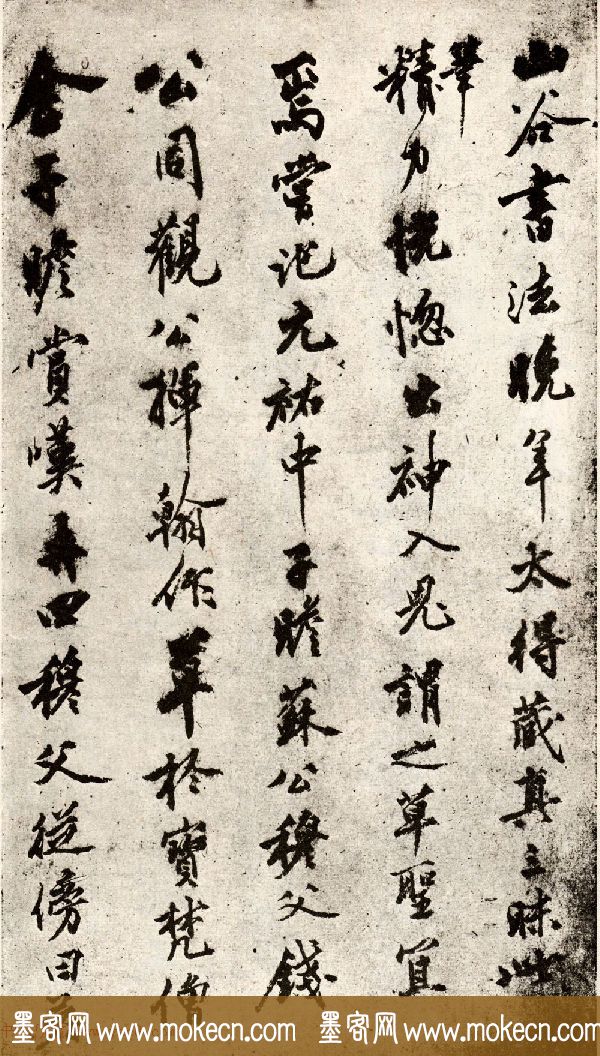 山谷書法晚年太得藏真三昧此
筆精力恍惚出神入鬼謂之草聖宜
焉嘗記元祐中子瞻蘇公穆父錢
公同觀公揮翰作草於寶梵僧
舍子瞻賞嘆再四穆父從傍曰
墨客网 www.mokecn.com 墨客网 www.mokecn.com